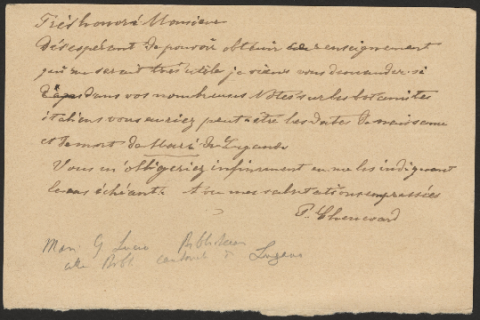 Très honoré Monsieur
Désespérant de pouvoir obtenir un renseignement
qui me serait très utile je viens vous demander si
dans vos nombreuses Notes sur les botanistes
italiens vous auriez peut-être les dates de naissance
et de mort de Mari de Lugano
Vous m'obligeriez infiniment en me les indiquant
le cas échéant. Avec mes salutations empressées
P. Chenevard
Mari G Lucio Bibliotecario
alla Bibl. cantonale di Lugano